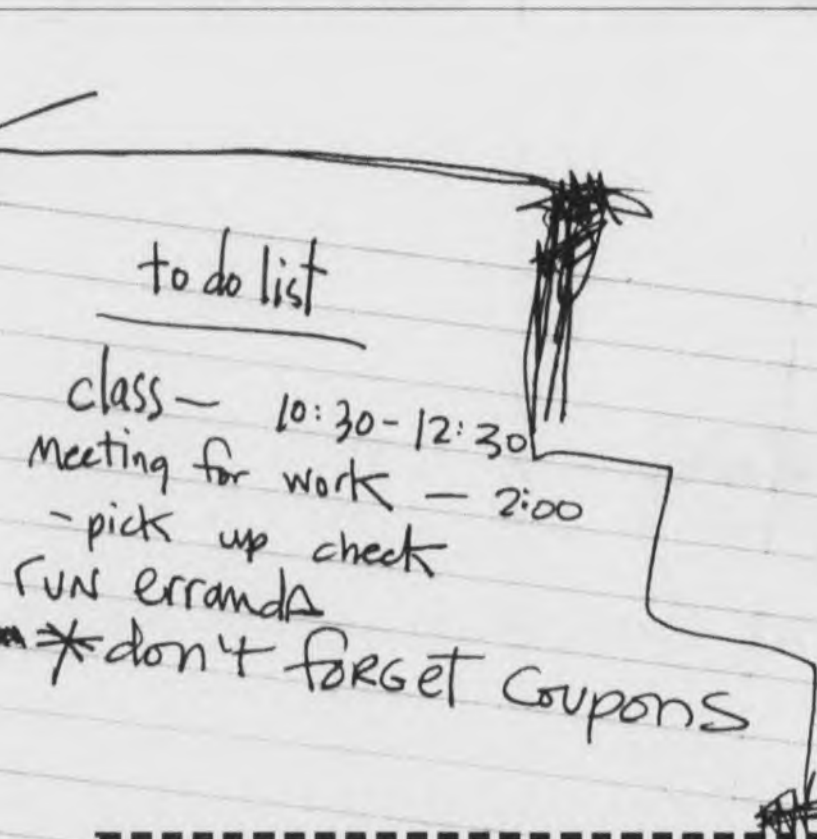 to do list
class – 10:30-12:30
Meeting for work – 2:00
- pick up check
run errands
* don't forget coupons